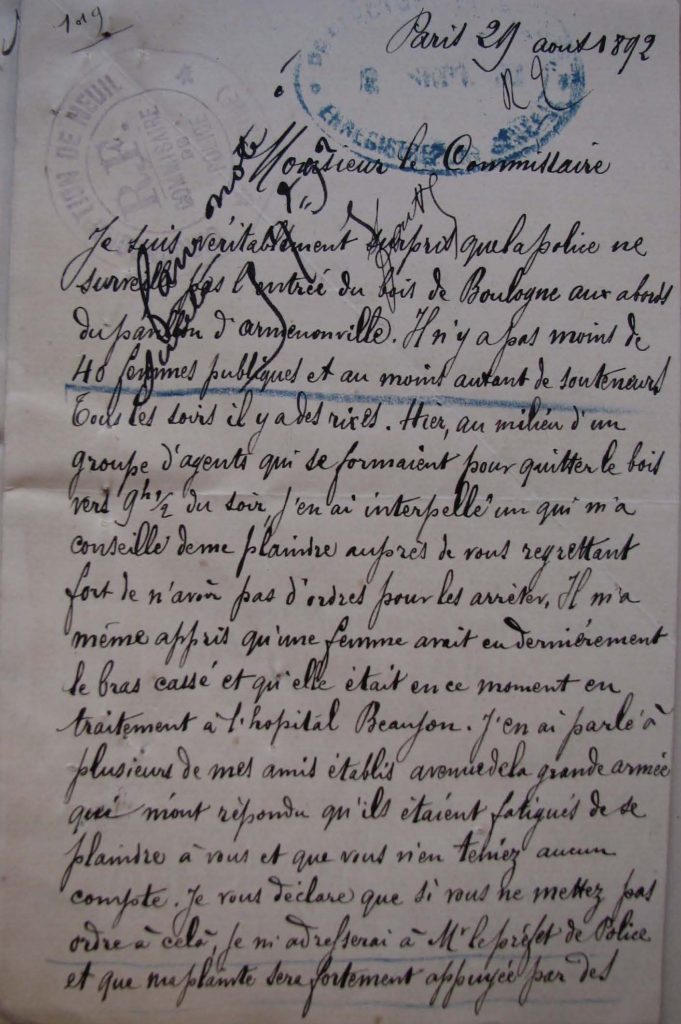 109
Paris 29 aout 1892
Monsieur le Commissaire
Je suis véritablement surpris que la police ne
surveille pas l'entrée du bois de Boulogne aux abords
du pavillon d'armenonville. Il n'y a pas moins de
40 femmes publiques et au moins autant de souteneurs
Tous les soirs il y a des rixes. Hier, au milieu d'un
groupe d'agents qui se formaient pour quitter le bois
vers 9h 1/2 du soir, j'en ai interpellé un qui m'a
conseillé de me plaindre auprès de vous regrettant
fort de n'avoir pas d'ordres pour les arrêter. Il m'a
même appris qu'une femme avait eu dernièrement
le bras cassé et qu'elle était en ce moment en
traitement à l'hopital Beaujon. J'en ai parlé à
plusieurs de mes amis établis avenue de la grande armée
qui m'ont répondu qu'ils étaient fatigués de se
plaindre à vous et que vous n'en teniez aucun
compte. Je vous déclare que si vous ne mettez pas
ordre à celà, je m'adresserai à Mr le préfet de Police
et que ma plainte sera fortement appuyée par des